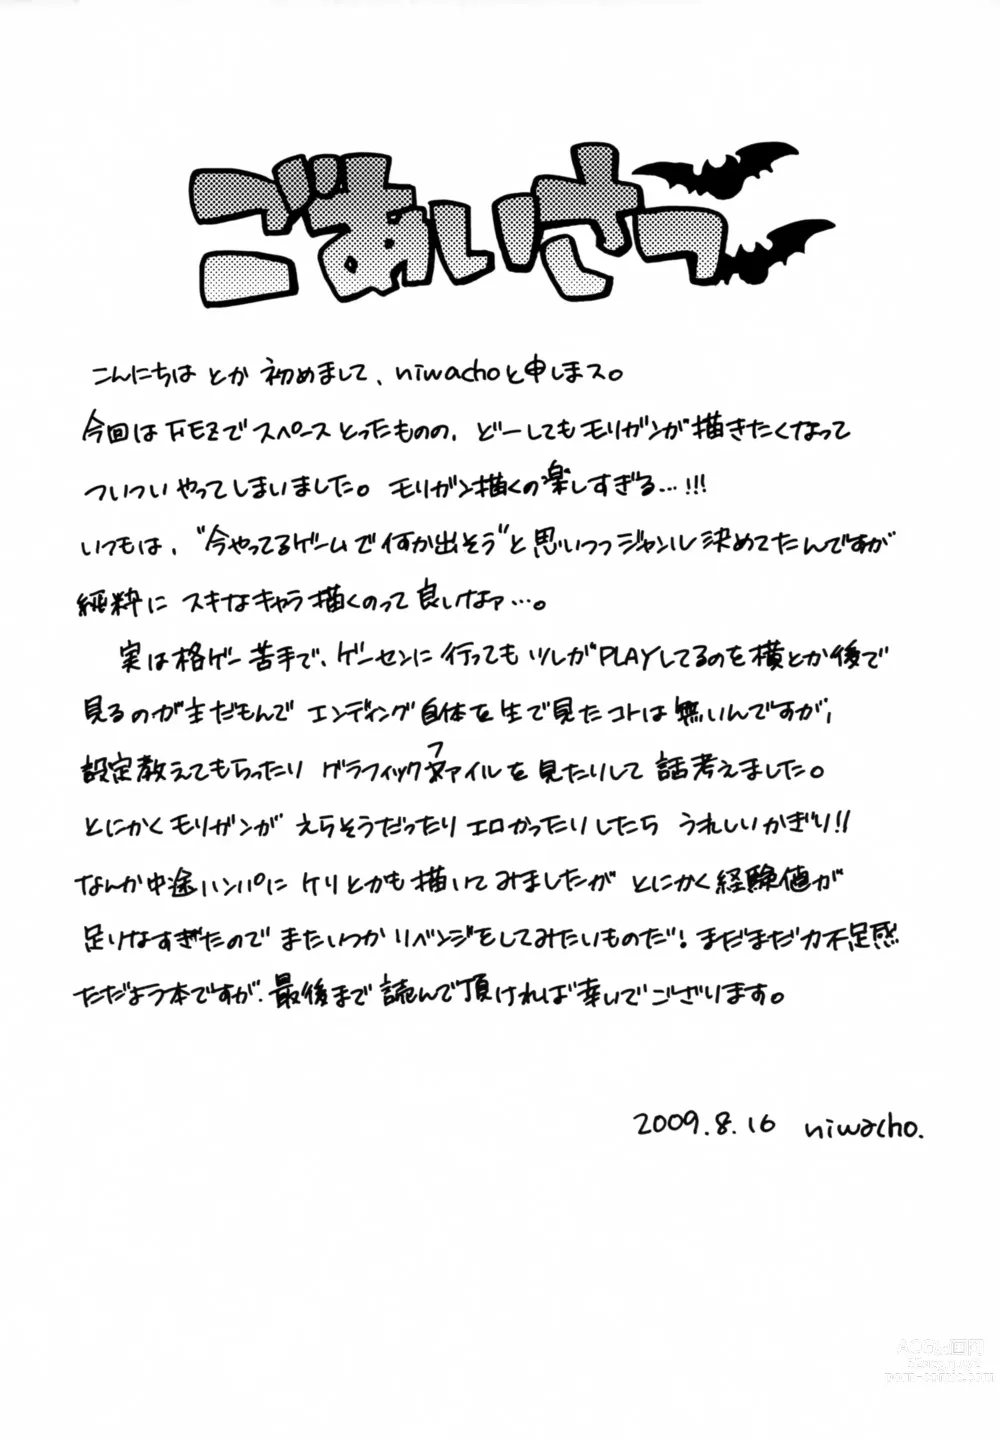 ごあいさつ
こんにちは とか 初めまして、niwachoと申しまス。
今回は FEZで スペースとったものの、どーしてもモリガンが描きたくなって
ついついやってしまいました。モリガン描くの楽しすぎる…!!!
いつもは、"今やってるゲームで何か出そう"と思いつつジャンル決めてたんですが
純粋に スキなキャラ描くのって良いなァ…。
実は格ゲー苦手で、ゲーセンに行ってもツレがPLAYしてるのを横とか後で
見るのが主だもんで エンディング自体を生で見たコトは無いんですが、
設定教えてもらったり グラフィックファイルを見たりして 話考えました。
とにかくモリガンが えらそうだったり エロかったりしたら うれしいかぎり!!
なんか中途ハンパに ケリとかも描いてみましたが とにかく経験値が
足りなすぎたので またいつか リベンジをしてみたいものだ!まだまだ力不足感
ただよう本ですが、最後まで読んで頂ければ幸いでございます。
2009.8.16 niwacho.
ACG漫画网
porn-comic.com